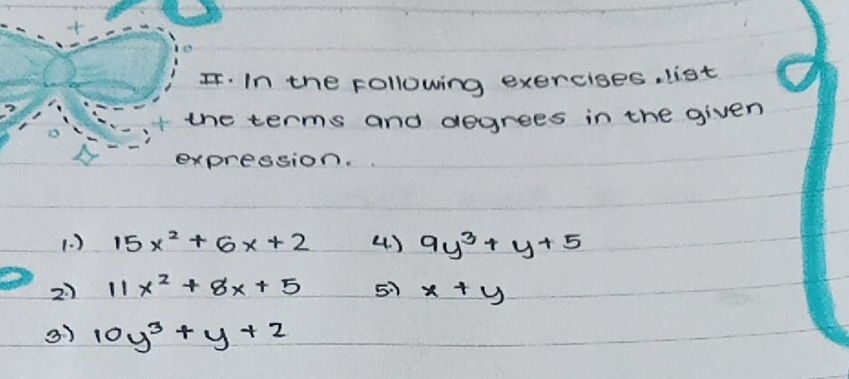 II. In the following exercises, list
the terms and degrees in the given
expression.
1.) 15x² + 6x + 2
2.) 11x² + 8x + 5
3.) 10y³ + y + 2
4.) 9y³ + y + 5
5.) x + y